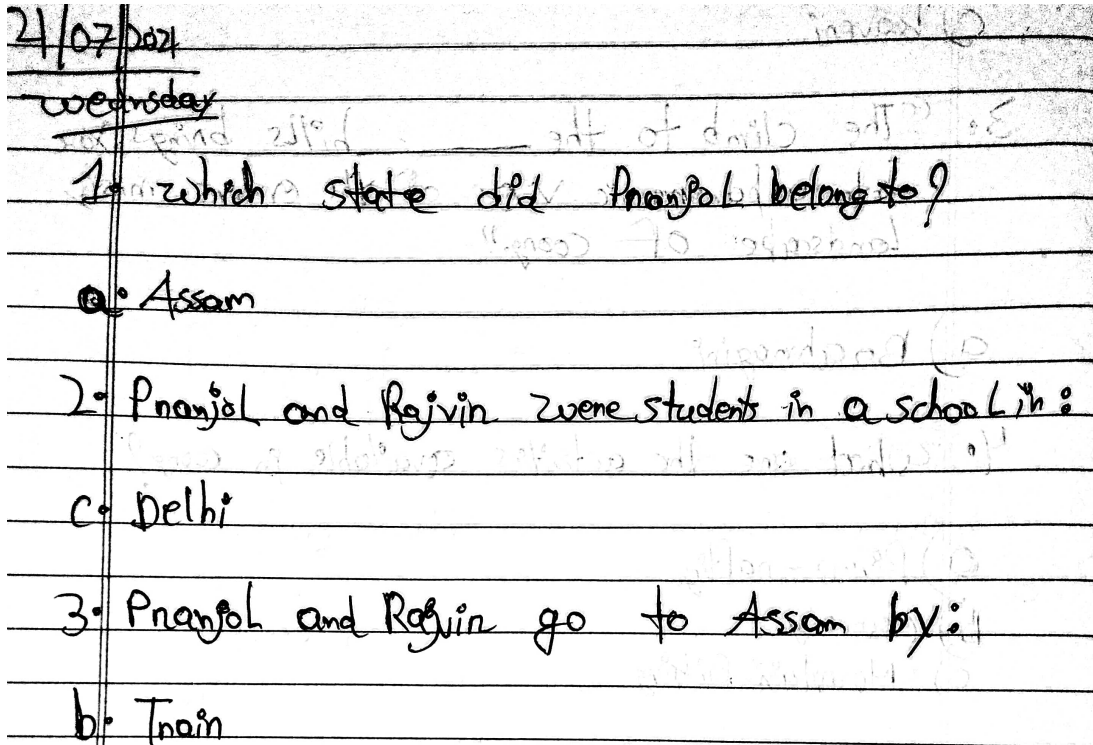 21/07/2021
Wednsday
1. Which state did Pranjol belong to?
a. Assam
2. Pranjol and Rajvin were students in a school in:
c. Delhi
3. Pranjol and Rajvin go to Assam by:
b. Train